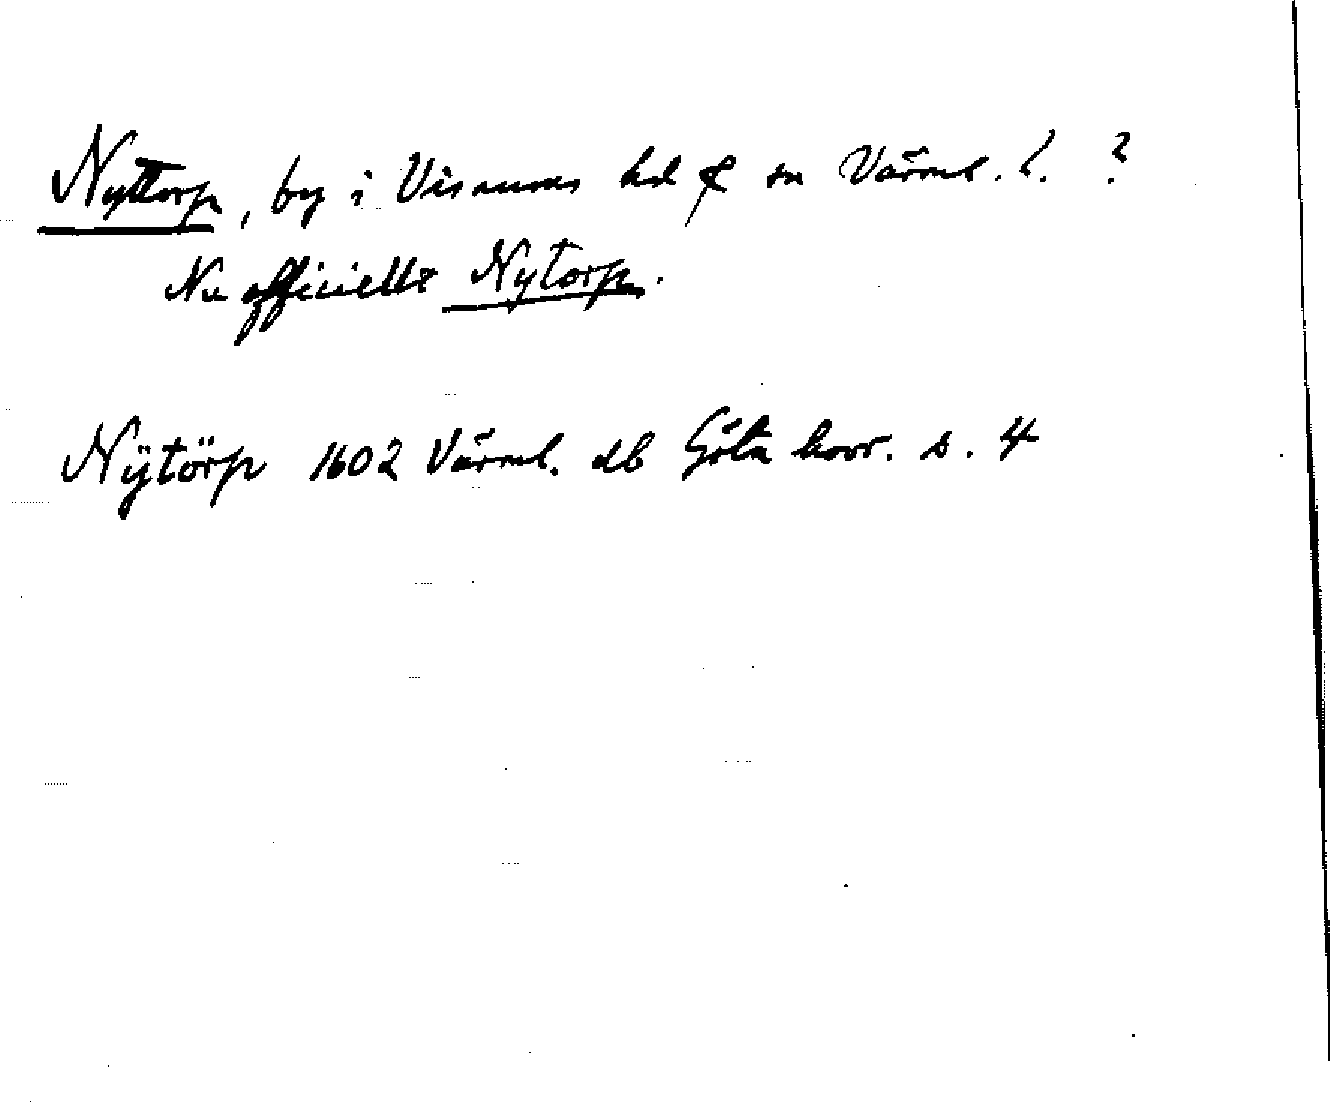 Nyttorp, by i Visnums hd & sn Värml. l. ?
Nu officiellt Nytorp.
Nÿtörp 1602 Värml. db Göta hovr. s. 4